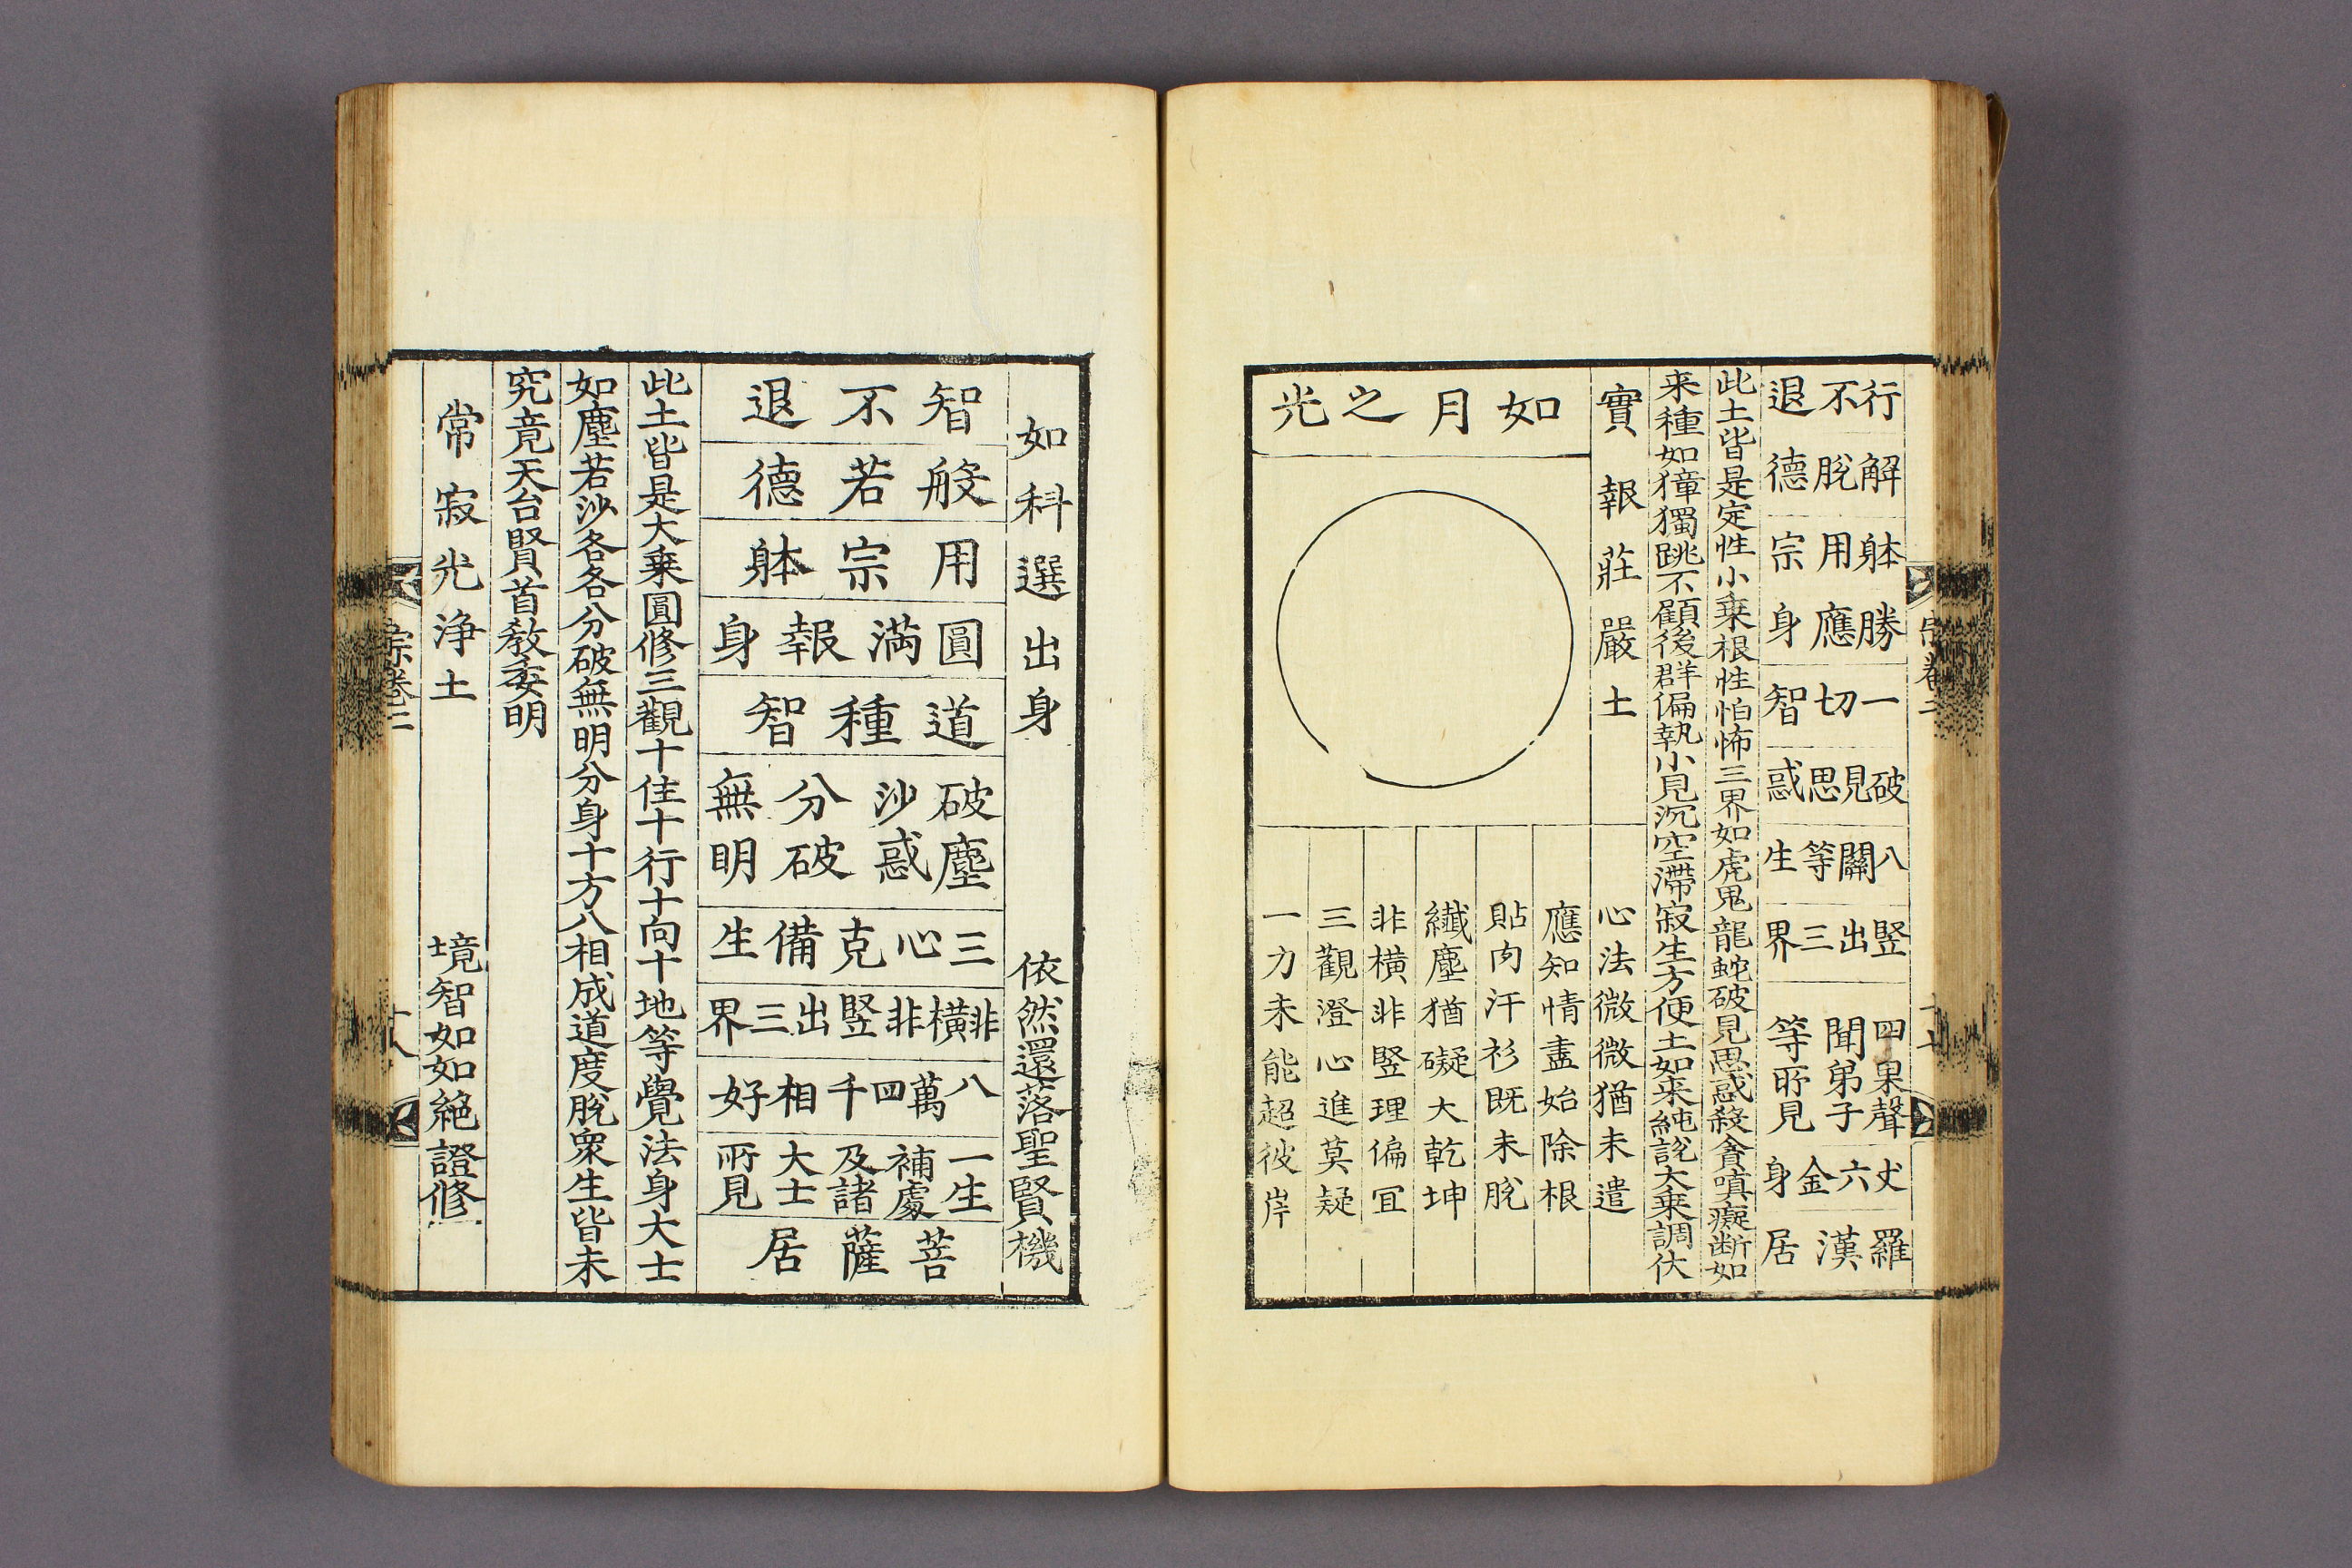 行不退
解脫德
躰用宗
勝應身
一切智
破見思惑
八關等生
竪出三界
四果聲聞弟子等所見
丈六金身
羅漢居
此土皆是定性小乗根性怕怖三界如虎鬼龍蛇破見思惑殺貪嗔癡断如
来種如獐獨跳不顧後群偏執小見沉空滯寂生方便土如来純說大乗調伏
實報莊嚴土
心法微微猶未遣
如月之光
應知情盡始除根
貼肉汗衫既未脫
纎塵猶礙大乾坤
非橫非竪理偏冝
三觀澄心進莫疑
一力未能超彼岸
如科選出身
依然還落聖賢機
智不退
般若德
用宗躰
圓滿報身
道種智
破塵沙惑分破無明
三心克備生
非橫非竪出三界
八萬四千相好
一生補處及諸大士所見
菩薩居
此土皆是大乗圓修三觀十住十行十向十地等覺法身大士
如塵若沙各各分破無明分身十方八相成道度脫衆生皆未
究竟天台賢首教委明
常寂光淨土
境智如如絶證修
宗卷二
十八